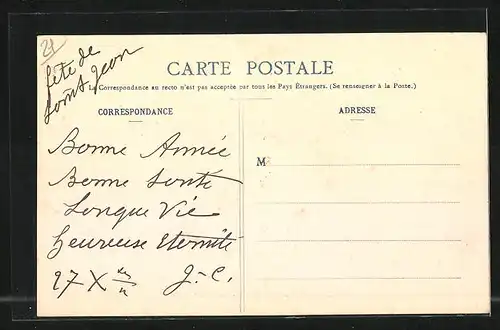 21
fête de
Saint Jean
CARTE POSTALE
La Correspondance au recto n'est pas acceptée par tous les Pays Étrangers. (Se renseigner à la Poste.)
CORRESPONDANCE
ADRESSE
Bonne Année
Bonne Santé
Longue Vie
heureuse Eternité
27 X
J.-C.
M